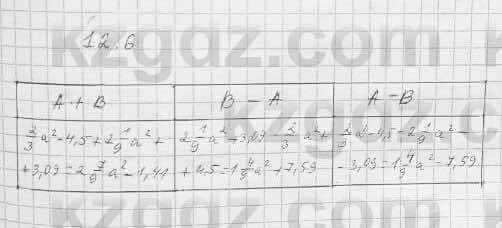 12.6
A + B
B - A
A - B
2/3 a² - 4,5 + 2 1/9 a² +
+ 3,09 = 2 7/9 a² - 1,41
2 1/9 a² + 3,09 - 2/3 a² +
+ 4,5 = 1 4/9 a² + 7,59
2/3 a² - 4,5 - 2 1/9 a² -
- 3,09 = 1 4/9 a² - 7,59
kzgdz.com